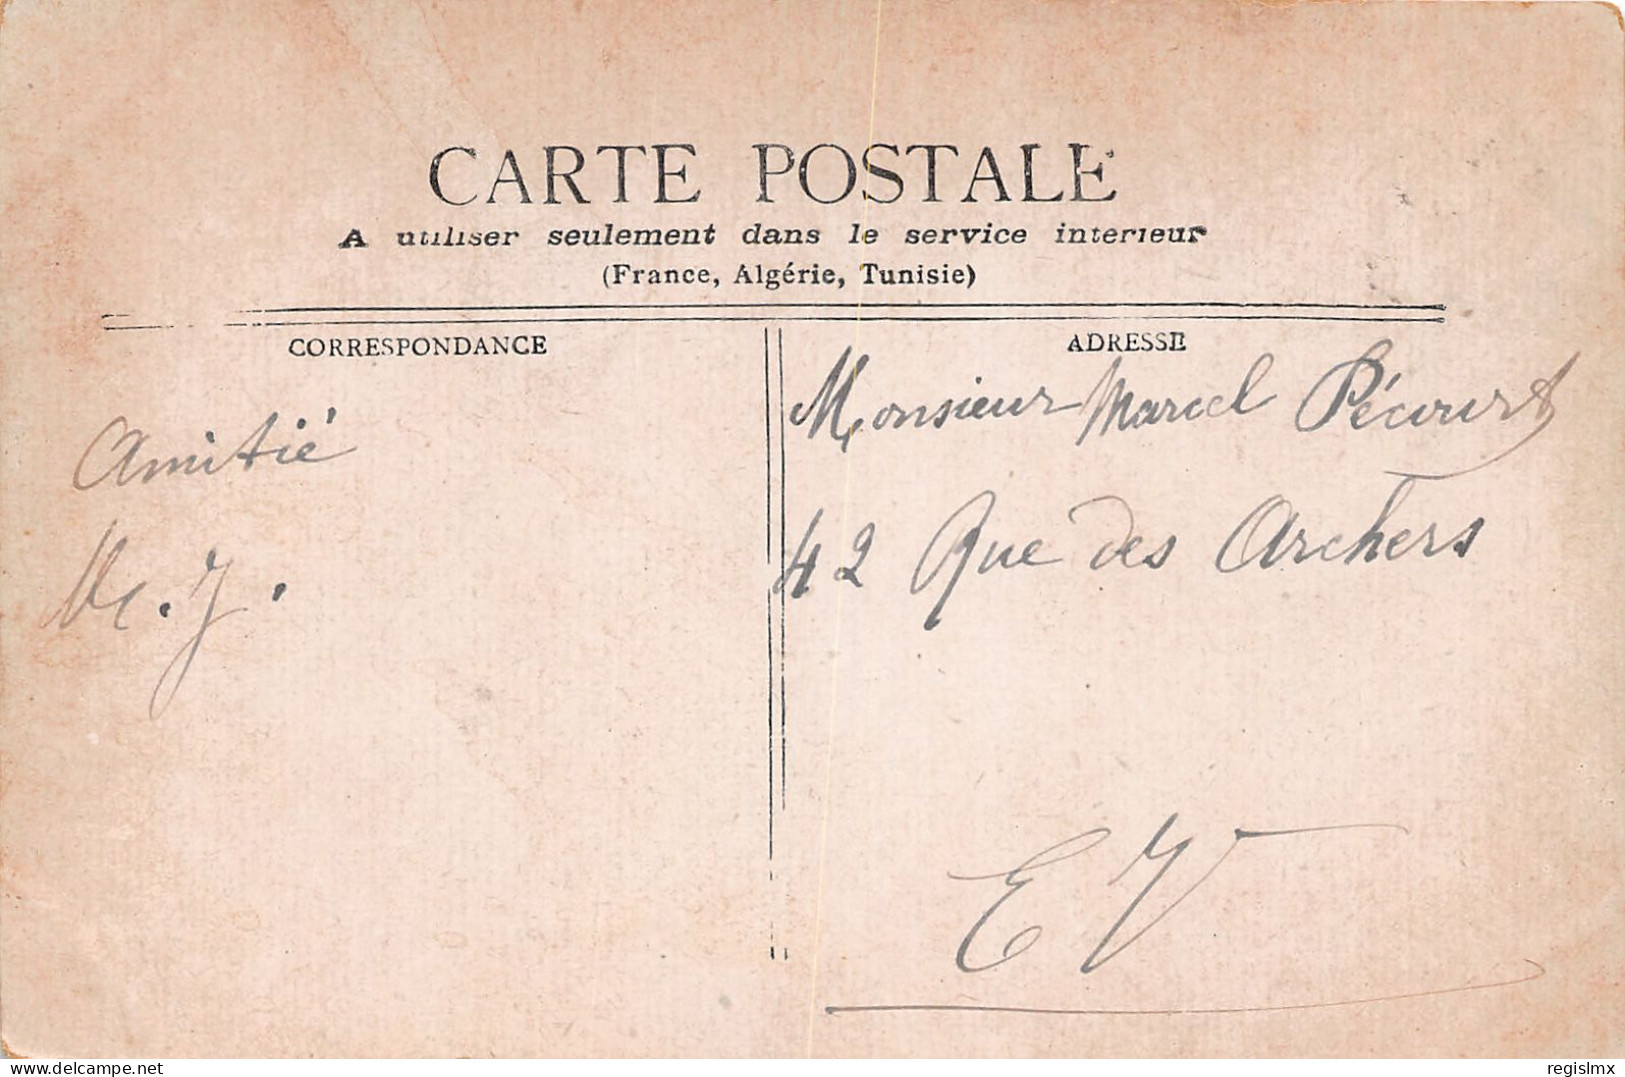 CARTE POSTALE
A utiliser seulement dans le service interieur
(France, Algérie, Tunisie)
CORRESPONDANCE
ADRESSE
Amitié
M. J.
Monsieur Marcel Pécourt
42 Rue des Archers
EV
delcampe.net
regislmx